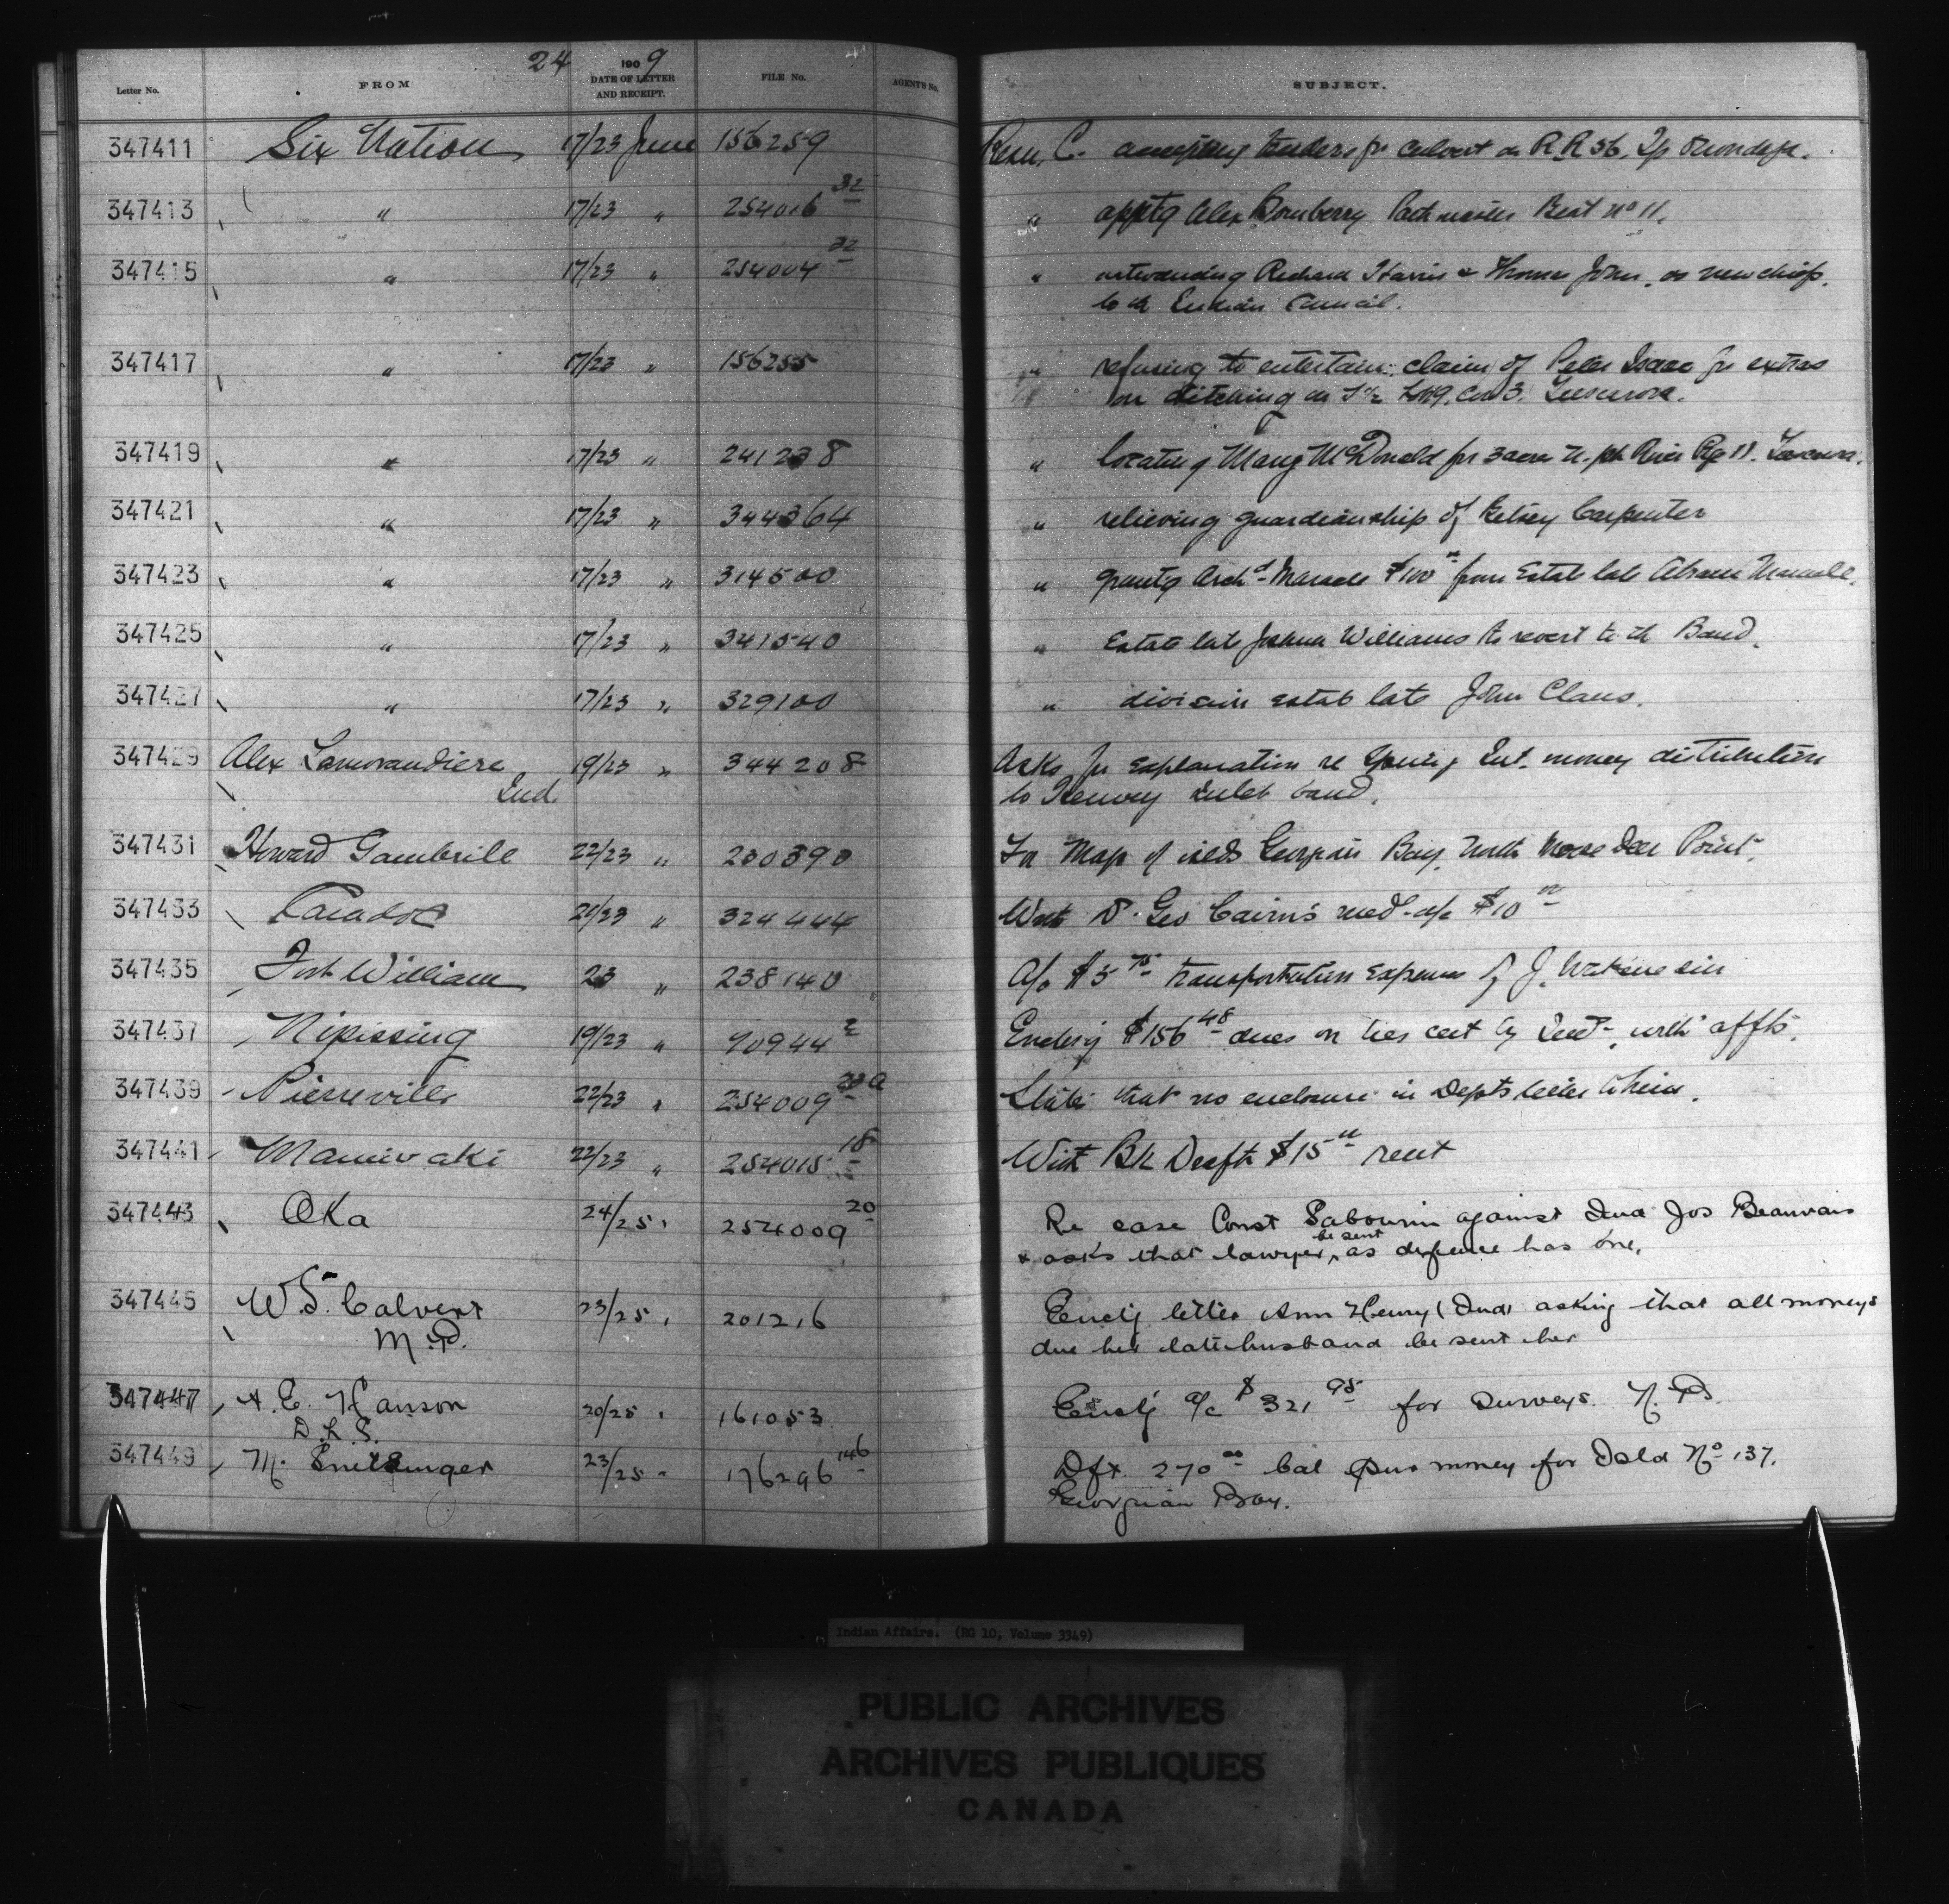 24 1909
Letter No. FROM DATE OF LETTER AND RECEIPT. FILE No. AGENT'S No. SUBJECT.
347411 Six Nation 17/23 June 156259 Resn. C. accepting tenders for culvert on R.R 56, Tp Onondaga.
347413 " 17/23 " 254016 32 " apptg Alex Bomberry Pathmaster Beat No 11.
347415 " 17/23 " 254004 32 " introducing Richard Harris & Thomas John, as new chiefs
to the Indian Council.
347417 " 17/23 " 156255 " refusing to entertain claim of Peter Isaac for extras
on ditching on Lot 9. Con 3. Tuscarora.
347419 " 17/23 " 241238 " locating Mary McDonald for 3 acres N. pt River Rge 11. Tuscarora.
347421 " 17/23 " 344364 " relieving guardianship of Kelsey Carpenter
347423 " 17/23 " 314500 " grantg Archd Maracle $100 00 from Estate late Abram Maracle.
347425 " 17/23 " 341540 " Estate late Joshua Williams to revert to the Band.
347427 " 17/23 " 329100 " division estate late John Claus.
347429 Alex Lamorandiere 19/23 " 344208 Asks for explanation re Int. money distribution
Ind. to Henvey Inlet band.
347431 Howard Gambrill 22/23 " 230390 For Map of islds Georgian Bay, North Moose Deer Point.
347433 Caradoc 21/23 " 324444 With Dr. Geo Cairns medl a/c $10 00
347435 Fort William 23 " 238140 A/c $5 75 transportation expenses of J.
347437 Nipissing 19/23 " 90944 2 Enclsg $156 48 dues on ties cut by Inds, with affts.
347439 Pierreville 22/23 " 254009 20a States that no enclosure in Depts letter to him.
347441 Maniwaki 22/23 " 254015 18 With Bk Draft $15 00 rent
347443 Oka 24/25 " 254009 20 Re case Const Sabourin against Inds Jos Beauvais
& asks that lawyer be sent, as defence has one.
347445 W.S. Calvert 23/25 " 201216 Enclg letter Ann Henry (Ind) asking that all moneys
M.P. due her late husband be sent her
347447 A. E. Hanson 20/25 " 161053 Enclg a/c $321 95 for surveys. N.
D.L.S.
347449 M. 23/25 " 176296 146 Dft. 270 00 bal pur money for Isld No 137.
Georgian Bay.
Indian Affairs. (RG 10, Volume 3349)
PUBLIC ARCHIVES
ARCHIVES PUBLIQUES
CANADA